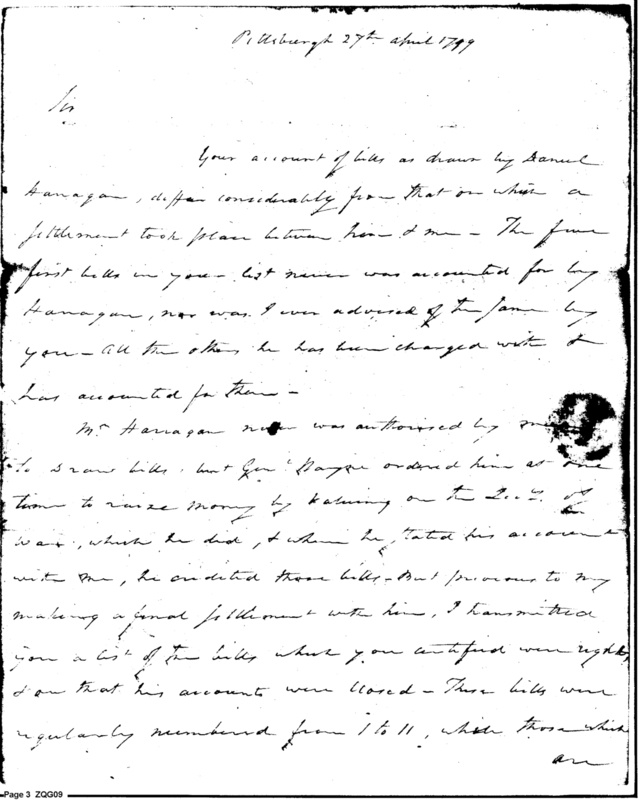 Pittsburgh 27th april 1799
Sir
Your account of bills as drawn by Daniel
Hanagan, differ considerably from that on which a
settlement took place between him & me – The
first bills in your list never was accounted for by
Hanagan, nor was I ever advised of the same by
you – All the others he has been charged with &
has accounted for them –
Mr Hanagan never was authorised by
to draw bills, but Genl Wayne ordered him at one
time to raise money by on the Secy of
War, which he did, & when he stated his account
with me, he credited those bills – But previous to my
making a final settlement with him, I transmitted
you a list of the bills which you certified were right,
& on that his accounts were closed – These bills were
regularly numbered from 1 to 11, while those which
are
Page 3 ZQG09